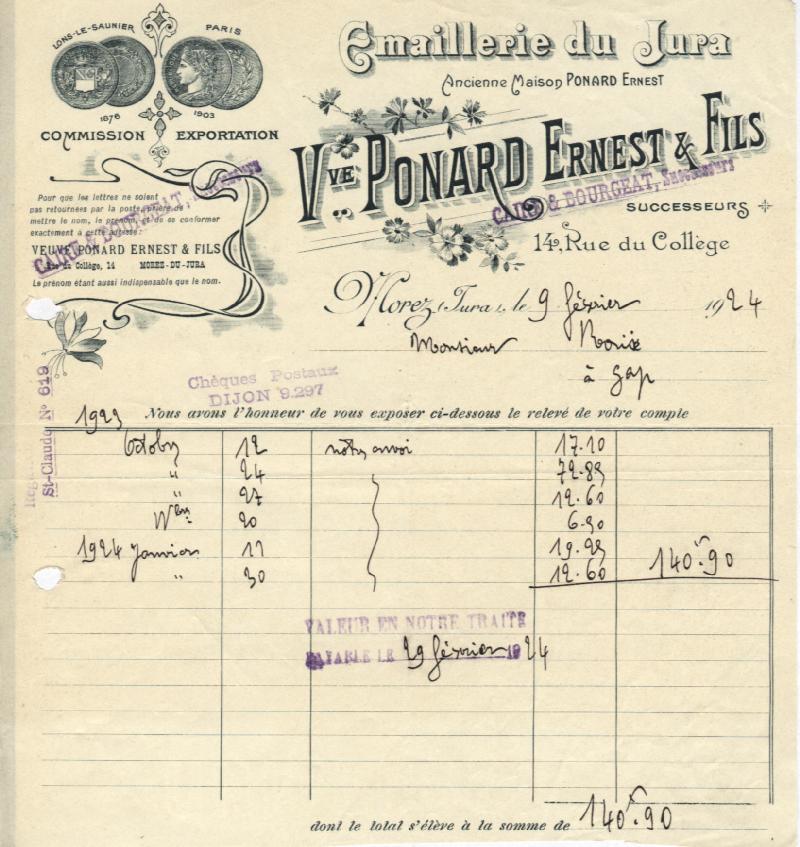 LONS-LE-SAUNIER PARIS
1876 1903
COMMISSION EXPORTATION
Emaillerie du Jura
Ancienne Maison PONARD ERNEST
Vve PONARD ERNEST & FILS
CAIRE & BOURGEAT, Successeurs
SUCCESSEURS
14, Rue du Collège
Pour que les lettres ne soient
pas retournées par la poste prière de
mettre le nom, le prénom, et de se conformer
exactement à cette adresse:
VEUVE PONARD ERNEST & FILS
Rue du Collège, 14 MOREZ-DU-JURA
Le prénom étant aussi indispensable que le nom.
CAIRE & BOURGEAT, Successeurs
Morez (Jura), le 9 février 1924
Monsieur
à Gap
Chèques Postaux
DIJON 9.297
St-Claude No 619
1923 Nous avons l'honneur de vous exposer ci-dessous le relevé de votre compte
Octobre 12 notre envoi 17.10
" 24 72.85
" 27 12.60
Nbre 20 6.90
1924 Janvier 17
" 30 12.60 140.90
VALEUR EN NOTRE TRAITE
PAYABLE LE 29 février 1924
dont le total s'élève à la somme de 140.90